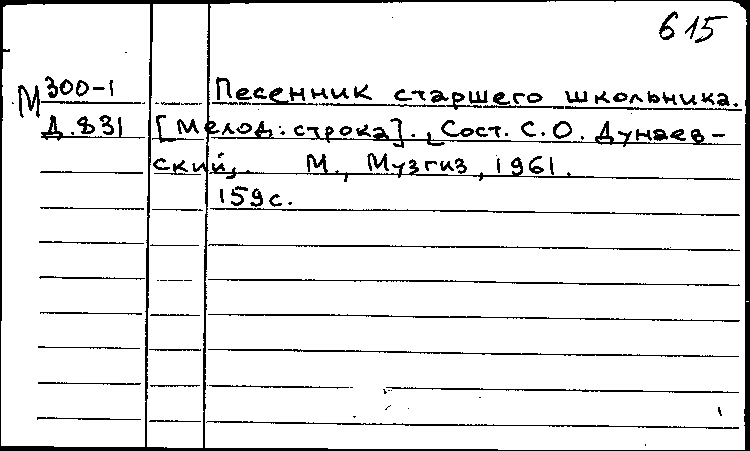 615
М 300-1 Песенник старшего школьника.
Д.831 [Мелод. строка]. Сост. С.О. Дунаев-
ский. М., Музгиз, 1961.
159с.